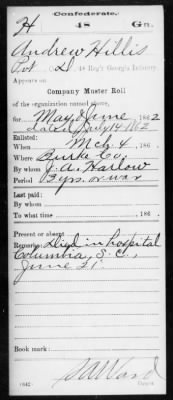 Confederate.
H 48 Ga.
Andrew Hillis
Pvt., Co. D, 48 Reg't Georgia Infantry.
Appears on
Company Muster Roll
of the organization named above,
for May & June, 1862
dated July 14 1862
Enlisted:
When Mch 4, 186
Where Burke Co.
By whom J. A. Harlow
Period 3 yrs. or war
Last paid:
By whom
To what time , 186 .
Present or absent
Remarks: Died in hospital
Columbia, S. C.,
June 21.
Book mark:
(642)
S. A. Ward
Copyist.